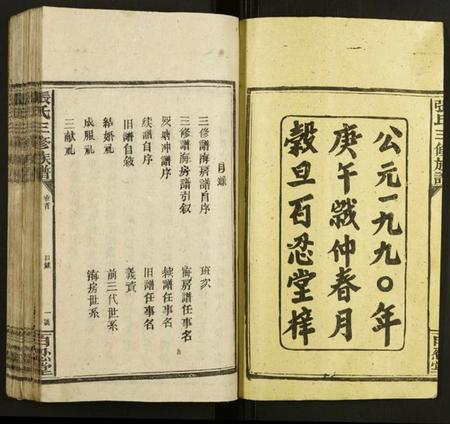 公元一九九〇年
庚午歲仲春月
榖旦百忍堂梓
張氏三修族譜
目錄
三修譜海房譜自序
三修譜海房譜引叙
續譜自序
旧譜自敘
結婚礼
成服礼
三献礼
班次
海房譜任事名
續譜任事名
旧譜任事名
義資
前三代世系
海房世系
張氏三修族譜
卷首
目錄
一號
百忍堂